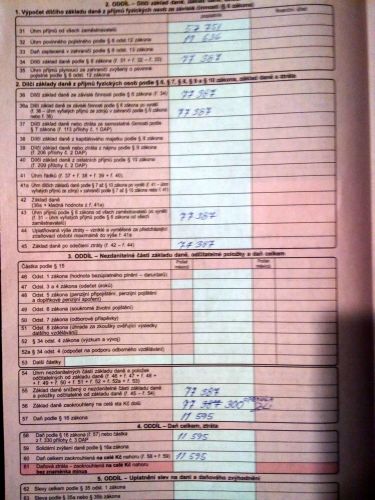 2. ODDÍL – Dílčí základ daně z příjmů fyzických osob ze závislé činnosti (§ 6 zákona)
1. Výpočet dílčího základu daně z příjmů fyzických osob ze závislé činnosti (§ 6 zákona)
poplatník
31 Úhrn příjmů od všech zaměstnavatelů 57 751
32 Úhrn povinného pojistného podle § 6 odst. 12 zákona 19 636
33 Daň zaplacená v zahraničí podle § 6 odst. 13 zákona
34 Dílčí základ daně podle § 6 zákona (ř. 31 + ř. 32 – ř. 33) 77 387
35 Úhrn příjmů plynoucí ze zahraničí zvýšený o povinné
pojistné podle § 6 odst. 12 zákona
2. Dílčí základy daně z příjmů fyzických osob podle § 6, § 7, § 8, § 9 a § 10 zákona, základ daně a ztráta
36 Dílčí základ daně ze závislé činnosti podle § 6 zákona (ř. 34) 77 387
36a Dílčí základ daně ze závislé činnosti podle § 6 zákona po vynětí
77 387
37 Dílčí základ daně nebo ztráta ze samostatné činnosti podle
§ 7 zákona (ř. 113 přílohy č. 1 DAP)
38 Dílčí základ daně z kapitálového majetku podle § 8 zákona
39 Dílčí základ daně nebo ztráta z nájmu podle § 9 zákona
(ř. 206 přílohy č. 2 DAP)
40 Dílčí základ daně z ostatních příjmů podle § 10 zákona
(ř. 209 přílohy č. 2 DAP)
41 Úhrn řádků (ř. 37 + ř. 38 + ř. 39 + ř. 40)
41a
42 Základ daně
(36a + kladná hodnota z ř. 41a)
43 Úhrn příjmů podle § 6 zákona od všech zaměstnavatelů po vynětí
77 387
44 Uplatňovaná výše ztráty – vzniklé a vyměřené za předcházející
zdaňovací období maximálně do výše ř. 41a
45 Základ daně po odečtení ztráty (ř. 42 – ř. 44) 77 387
3. ODDÍL – Nezdanitelné části základu daně, odčitatelné položky a daň celkem
Částka podle § 15 Počet měsíců Počet měsíců
46 Odst. 1 zákona (hodnota bezúplatného plnění – daru/darů)
47 Odst. 3 a 4 zákona (odečet úroků)
48 Odst. 5 zákona (penzijní připojištění, penzijní pojištění
a doplňkové penzijní spoření)
49 Odst. 6 zákona (soukromé životní pojištění)
50 Odst. 7 zákona (odborové příspěvky)
51 Odst. 8 zákona (úhrada za zkoušky ověřující výsledky
dalšího vzdělávání)
52 § 34 odst. 4 zákona (výzkum a vývoj)
52a § 34 odst. 4 zákona (odpočet na podporu odborného vzdělávání)
53 Další částky
54 Úhrn nezdanitelných částí základu daně a položek
odčitatelných od základu daně (ř. 46 + ř. 47 + ř. 48 +
+ ř. 49 + ř. 50 + ř. 51 + ř. 52 + ř. 52a + ř. 53)
55 Základ daně snížený o nezdanitelné části základu daně
a položky odčitatelné od základu daně (ř. 45 – ř. 54) 77 387
56 Základ daně zaokrouhlený na celá sta Kč dolů 77 387 300
57 Daň podle § 16 zákona 11 595
4. ODDÍL – Daň celkem, ztráta
58 Daň podle § 16 zákona (ř. 57) nebo částka
z ř. 330 přílohy č. 3 DAP 11 595
59 Solidární zvýšení daně podle § 16a zákona
60 Daň celkem zaokrouhlená na celé Kč nahoru (ř. 58 + ř. 59) 11 595
61 Daňová ztráta – zaokrouhlená na celé Kč nahoru
bez znaménka minus
5. ODDÍL – Uplatnění slev na dani a daňového zvýhodnění
62 Slevy celkem podle § 35 odst. 1 zákona
63 Sleva podle § 35a nebo § 35b zákona